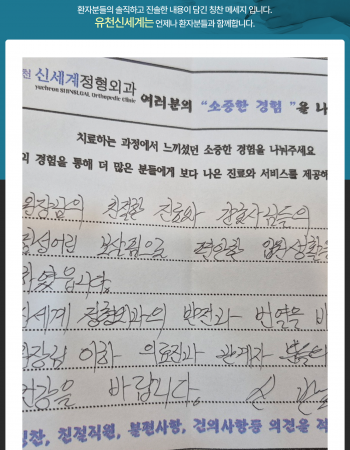 환자분들의 솔직하고 진솔한 내용이 담긴 칭찬 메세지 입니다.
유천신세계는 언제나 환자분들과 함께합니다.
천 신세계정형외과
yucheon SHINSEGAE Orthopedic Clinic
여러분의 "소중한 경험 "을 나
치료하는 과정에서 느끼셨던 소중한 경험을 나눠주세요
의 경험을 통해 더 많은 분들에게 보다 나은 진료와 서비스를 제공하
원장님의 친절한 진료와 간호사님들의
정성어린 보살핌으로 편안한 입원생활을
하였읍니다.
신세계 정형외과의 발전과 번영을 바
원장님 이하 의료진과 관계자
건강을 바랍니다.
칭찬, 친절직원, 불편사항, 건의사항등 의견을 적